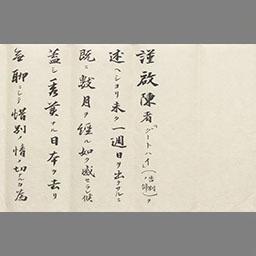 謹啟陳者「グートハイ」(告別ノ辞)ヲ
述ヘショリ未タ一週日ヲ出テサルニ
既ニ数月ヲ経ル如ク感セラレ候
蓋シ秀美ナル日本ヲ去リ
無聊ニシテ惜別ノ情ノ切ナル為